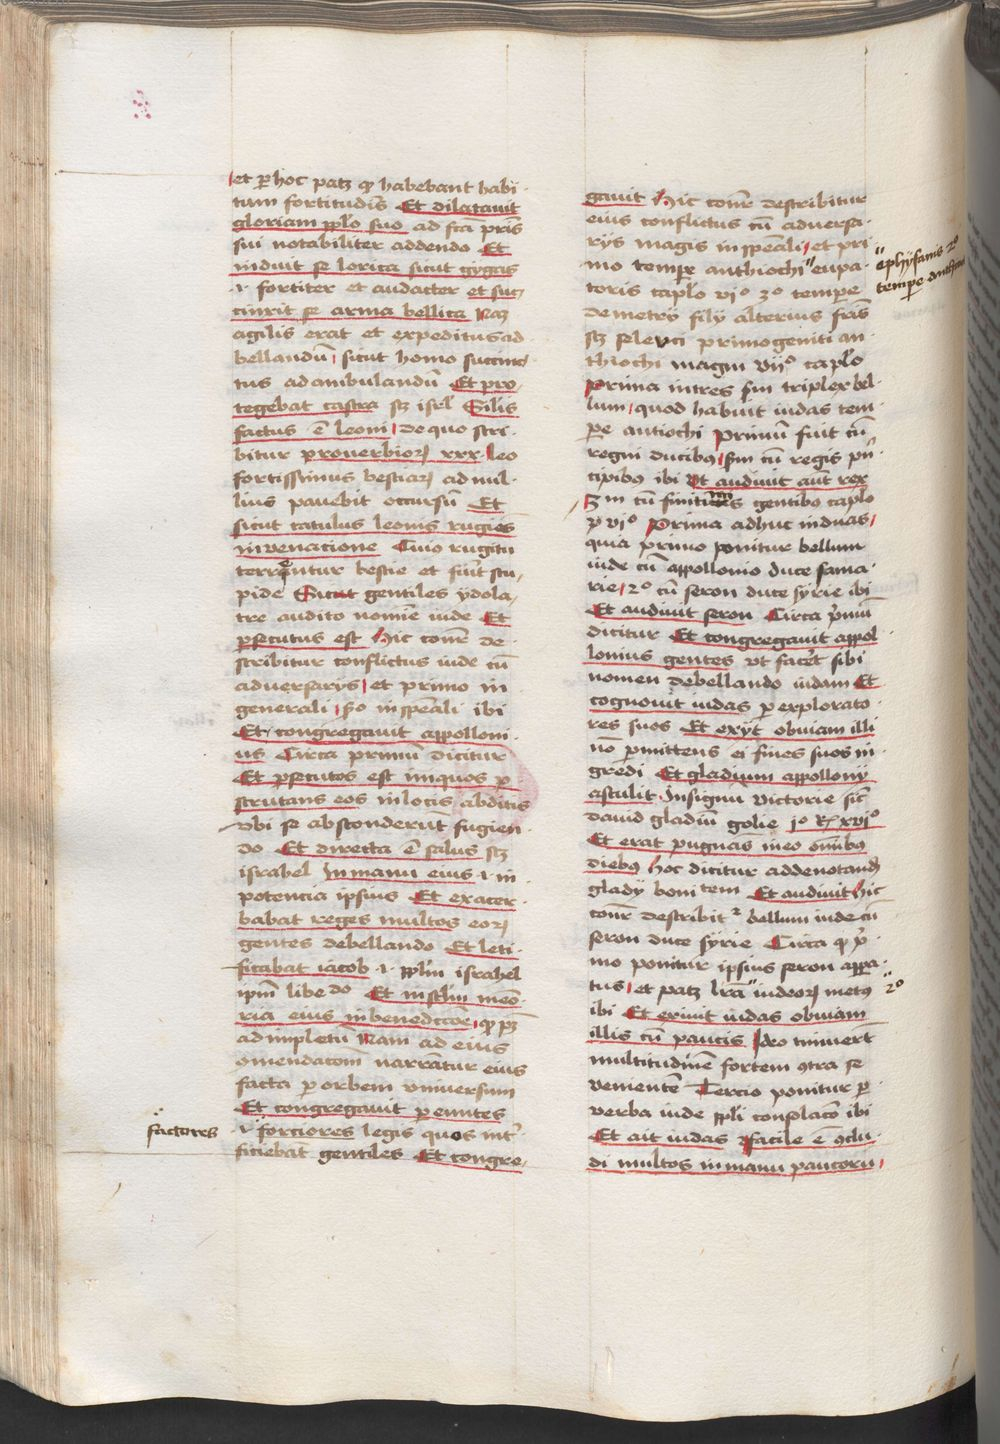 et p hoc patz qɔ habebant habi
tum fortitudīs Et dilatauit
gloriam pplo suo ad scā pris
sui notabiliter addendo Et
induit se lorica sicut gygas
.i. fortiter et audacter et suc
cinxit se arma bellica Naz
agilis erat et expeditus ad
bellandū sicut homo succinc
tus ad ambulandū Et pro
tegebat castra sz isrl Silis
factus ē leoni De quo scri
bitur prouerbioꝝ xxx. Leo
fortissimus bestiaꝝ ad nul
lius pauebit occursū Et
sicut catulus leonis rugiēs
in venacione Cuiꝰ rugitu
terrentur bestie et fiūt stu
pide Sicut gentiles ydola
tre audito nomīe iude Et
psecutus est Hic cōnr de
scribitur conflictus iude cū
aduersarijs et primo in
generali scdo in spēali ibi
Et congregauit appolloni
us Circa primū dicitur
Et psecutos est iniquos p
scrutans eos in locis abditis
vbi se absconderūt fugien
do Et directa ē salus sz
israhel In manu eius .i. in
potencia ipsius Et exacer
babat reges multos eoꝝ
gentes debellando Et leti
ficabat iacob .i. pplm israhel
ipm libedo Et in sclm meō
ria eius in benedccōe qɔ pz
adimpletū Nam ad eius
ɔmendacōm narrātur eius
facta p orbem vniuersum
Et congregauit peuntes
factores
.i. forciores legis quos int
ficiebāt gentiles Et congre
gauit Hic cōnr describitur
eius conflictus cū aduersa
rijs magis in spēali et pri
mo tempe anthiochi eupa
ephyfanis 2º
tempe anthioci
toris caplo viº 3º tempere
demetrij filij alterius fris
sz seleuci primogeniti an
thiochi magni vijº caplo
Prima in tres sm triplex bel
lum quod habuit iudas tem
pe antiochi Primū fuit cū
regni ducibꝰ scdm cū regis prin
cipibus ibi Ut audiuit aūt rex
3m cū finitimis gentibꝰ caplo
p viº Prima adhuc in duas
quia primo ponitur bellum
iude cū appollonio duce sama
rie 2º cū seron duce syrie ibi
Et audiuit seron Circa pmū
dicitur Et congregauit appol
lonius gentes vt facēt sibi
nomen debellando iudam Et
cognouit iudas p explorato
res suos Et exijt obuiam illi
nō pmittens ei fines suos in
gredi Et gladium appollonij
abstulit In signū victorie sic
dauid gladiū golie jº Rꝝ xvijº
Et erat pugnās in eo omībꝰ
diebꝰ Hoc dicitur ad denotandā
gladij bonitem Et audiuit Hic
cōnr describitr bellum iude cū
seron duce syrie Circa qɔ p
mo ponitur ipsius seron appa
tus et patz lrā iudeoꝝ metꝰ
2º
ibi Et exiuit iudas obuiam
illis cū paucis Ideo timuerūt
multitudinē fortem ɔtra se
venientē Tercio ponitur p
verba iude ppli consolacō ibi
Et ait iudas facile ē ɔclu
di multos in manu paucoru